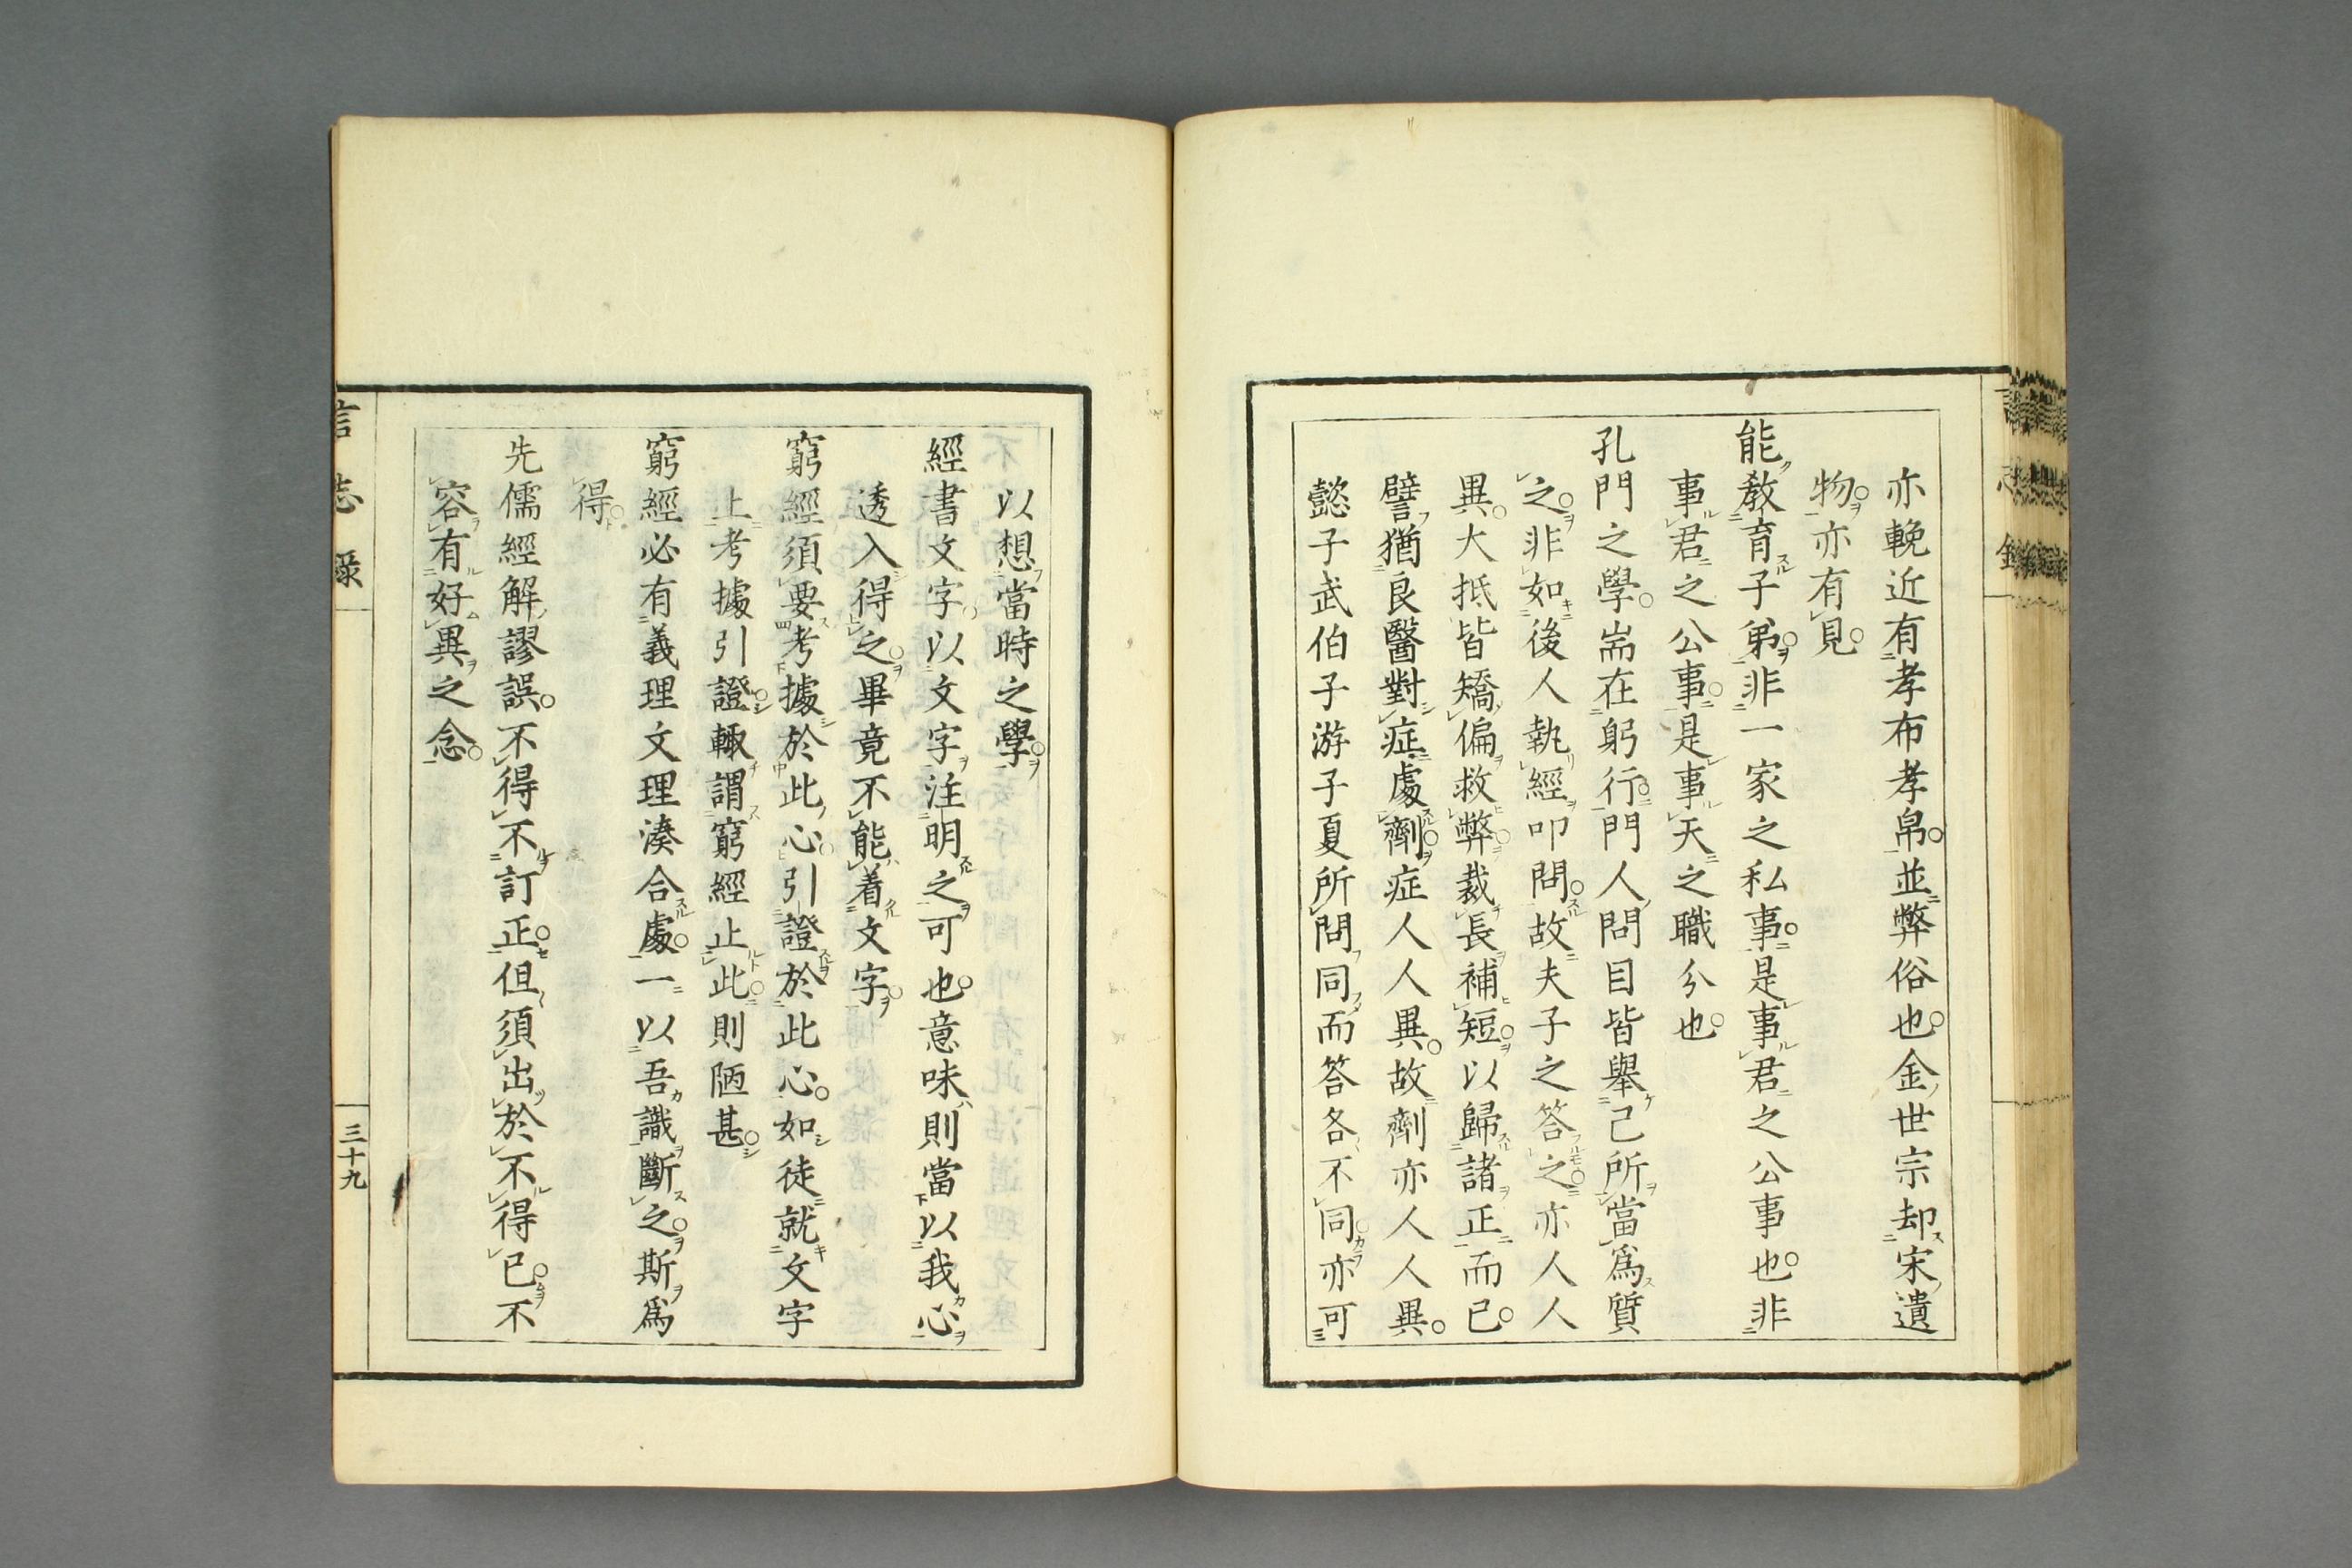 亦輓近有孝布孝帛並弊俗也金世宗却宋遺
物亦有見
能敎育子弟非一家之私事是事君之公事也非
事君之公事是事天之職分也
孔門之學耑在躬行門人問目皆舉己所當爲質
之非如後人執經叩問故夫子之答之亦人人
異大抵皆矯偏救弊裁長補短以歸諸正而已
譬猶良醫對症處劑症人人異故劑亦人人異
懿子武伯子游子夏所問同而答各不同亦可
以想當時之學
經書文字以文字注明之可也意味則當以我心
透入得之畢竟不能着文字
窮經須要考據於此心引證於此心如徒就文字
上考據引證輙謂窮經止此則陋甚
窮經必有義理文理湊合處一以吾識斷之斯爲
得
先儒經解謬誤不得不訂正但須出於不得已不
容有好異之念
言志錄
三十九